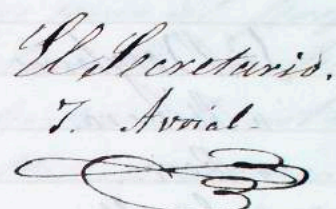 El Secretario.
J. Avrial